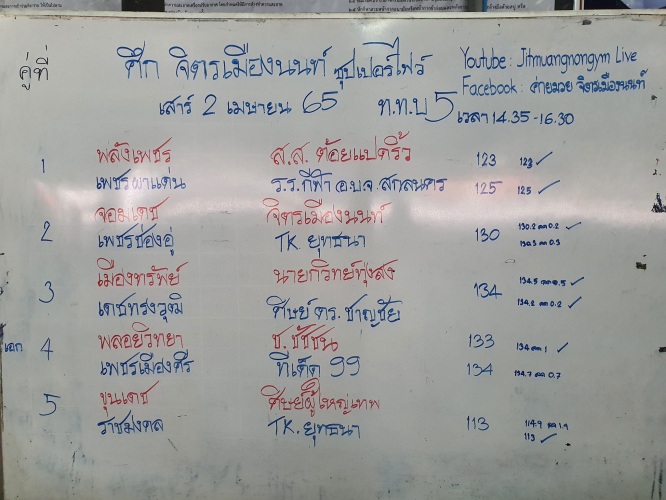 คู่ที่
ศึก จิตรเมืองนนท์ ซุปเปอร์ไฟว์
เสาร์ 2 เมษายน 65 ท.ท.บ 5
Youtube : Jitmuangnongym Live
Facebook : ค่ายมวย จิตรเมืองนนท์
เวลา 14.35 -16.30
1 พลังเพชร ส.ส. ต้อยแปดริ้ว 123 123 ✓
เพชรผาแด่น ร.ร.กีฬา อ.บ.จ สกลนคร 125 125 ✓
2 จอมเดช จิตรเมืองนนท์ 130 130.2 ลด 0.2 ✓
เพชรช่องอู่ TK ยุทธนา 130.3 ลด 0.3
3 เมืองทรัพย์ นายกวิทย์ทุ่งสง 134 134.5 ลด 0.5 ✓
เดชทรงวุฒิ ศิษย์ ดร. ชาญชัย 134.2 ลด 0.2 ✓
เอก 4 พลอยวิทยา ช. ชัชชน 133 134 ลด 1 ✓
เพชรเมืองศรี ทีเด็ด 99 134 134.7 ลด 0.7
5 ขุนเดช ศิษย์ผู้ใหญ่เทพ 113 114.9 ลด 1.9
ราชมงคล TK. ยุทธนา 113 ✓